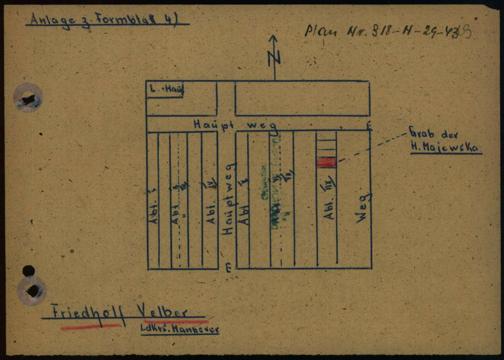 Anlage z. Formblatt 4)
Plan Nr. 918-H-29-
N
L.-Haus
Hauptweg
E
Grab der
H. Majewska
Abt. I
Abt. II
Abt. IV
Hauptweg
Abt. I
Abt. III
Weg
E
Friedhoff Velber
Ldkrs. Hannover